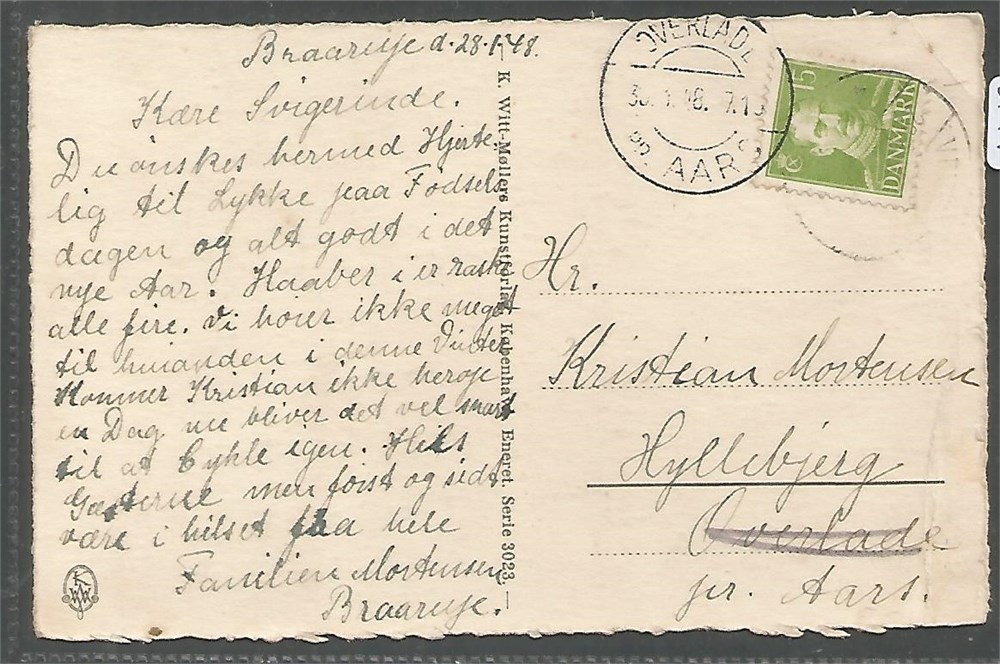 Braarup d. 28.1.48.
Kære Svigerinde.
Du ønskes hermed Hjerte-
lig til Lykke paa Fødsels
dagen og alt godt i det
nye Aar. Haaber i er raske
alle fire. Vi hører ikke meget
til hinanden i denne Vinter
Kommer Kristian ikke herop
en Dag nu bliver det vel snart
til at Cykle igen. Hils
Gæsterne men først og sidst
være i hilset fra hele
Familien Mortensen
Braarup.
K. Witt-Møllers Kunstforlag, København. Eneret. Serie 3023.
OVERLADE
1.48. 7.1
pr. AARS
15
DANMARK
Hr.
Kristian Mortensen
Hyllebjerg
Overlade
pr. Aars.